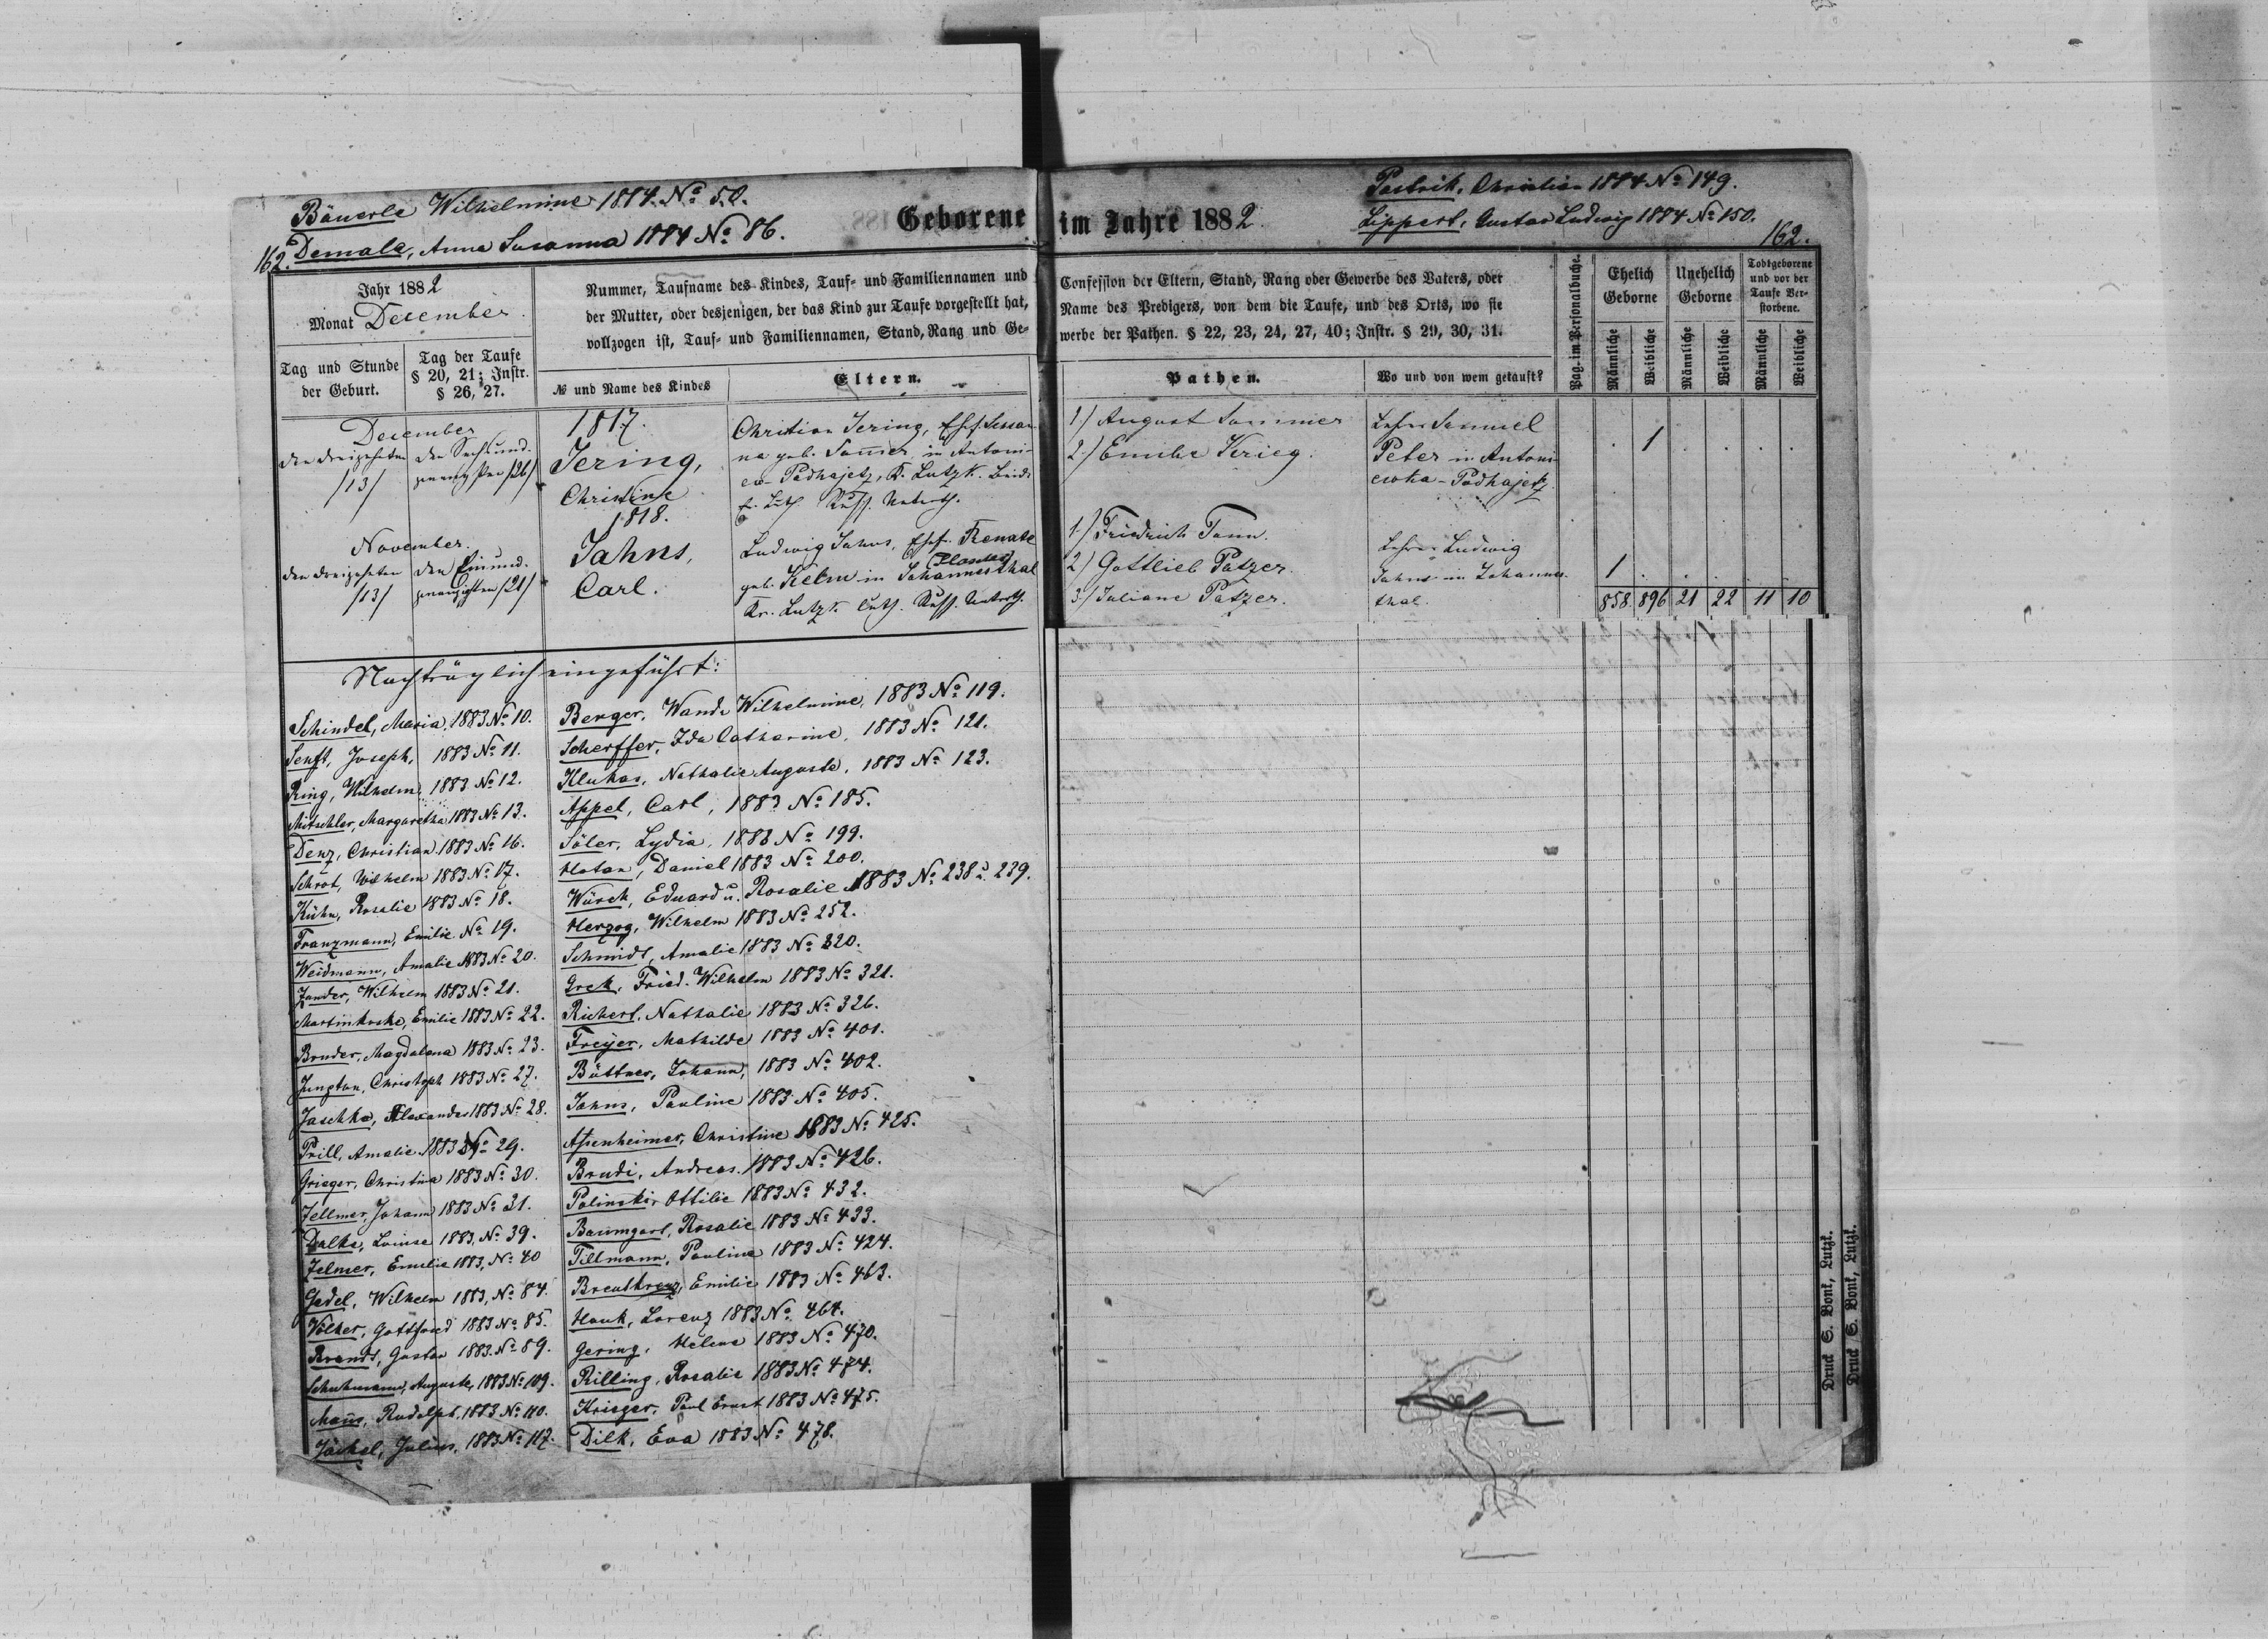 Bäuerle Wilhelmine 1884. No 50.
162. Demala, Anna Susanna 1884 No 86.
Geborene im Jahre 1882
Pastrik, Christian 1884 No 149.
Lippert, Gustav Ludwig 1884 No 150.
162.
Jahr 1882
Monat December
Tag und Stunde
der Geburt.
Tag der Taufe
§ 20, 21; Instr.
§ 26, 27.
Nummer, Taufname des Kindes, Tauf- und Familiennamen und
der Mutter, oder desjenigen, der das Kind zur Taufe vorgestellt hat,
vollzogen ist, Tauf- und Familiennamen, Stand, Rang und Ge-
№ und Name des Kindes
Eltern.
Confession der Eltern, Stand, Rang oder Gewerbe des Vaters, oder
Name des Predigers, von dem die Taufe, und des Orts, wo sie
werbe der Pathen. § 22, 23, 24, 27, 40; Instr. § 29, 30, 31.
Pathen.
Wo und von wem getauft?
Pag. im Personalbuche.
Ehelich
Geborne
Unehelich
Geborne
Todtgeborene
und vor der
Taufe Ver-
storbene.
Männliche
Weibliche
Männliche
Weibliche
Männliche
Weibliche
December
den dreizehnten
/13/
den Sechsund-
zwanzigsten /26/
1817.
Jering,
Christine
Christian Jering, Ehef. Susan-
na geb. Sommer, in Antoni-
ew-Podhajetz, K. Lutzk. Beide
ev. Luth. Russ. Unterth.
1./ August Sommer
2./ Emilie Krieg.
Lehrer Samuel
Peter in Antoni-
ewka-Podhajetz
1
November.
den dreizehnten
/13/
den Einund-
zwanzigsten /21/
1818.
Jahns,
Carl.
Ludwig Jahns, Ehef. Renate
geb. Kelm in Johannesthal
Kr. Lutzk Luth. Russ. Unterth.
1./ Friedrich Tonn.
2./ Gottlieb Patzer.
3./ Juliane Patzer.
Lehrer Ludwig
Jahns in Johannes-
thal.
1
858 896 21 22 11 10
Nachträglich eingeführt:
Schindel, Maria, 1883 No 10.
Senft, Joseph, 1883 No 11.
Ring, Wilhelm, 1883 No 12.
Mitschler, Margaretha 1883 No 13.
Denz, Christian. 1883 No 16.
Schrot, Wilhelm 1883 No 17.
Kühn, Rosalie 1883 No 18.
Franzmann, Emilie No 19.
Weidmann, Amalie 1883 No 20.
Zander, Wilhelm 1883 No 21.
Emilie 1883 No 22.
Bruder, Magdalena 1883 No 23.
Christoph 1883 No 27.
Jaschke, Alexander 1883 No 28.
Prill, Amalie 1883 No 29.
Grieger, Christina 1883 No 30.
Zellmer, Johann 1883 No 31.
Dalke, Louise 1883, No 39.
Zelmer, Emilie 1883, No 40
Gedel, Wilhelm 1883, No 84.
Völker, Gottfried 1883 No 85.
Brandt, Gustav 1883. No 89.
Schuhmann, Auguste, 1883 No 109.
Rudolph, 1883 No 110.
Jäckel, Julius, 1883 No 117.
Berger, Wanda Wilhelmine, 1883 No 119.
Scherffer, Ida Catharine, 1883 No 121.
Klukas, Nathalie Auguste, 1883 No 123.
Appel, Carl, 1883 No 185.
Söler, Lydia, 1883 No 199.
Daniel 1883 No 200.
Würch, Eduard u. Rosalie 1883 No 238 u. 239.
Herzog, Wilhelm 1883 No 252.
Schmidt, Amalie 1883 No 320.
Grek, Fried. Wilhelm 1883 No 321.
Richert, Nathalie 1883 No 326.
Freyer, Mathilde 1883 No 401.
Büttner, Johann, 1883 No 402.
Jahns, Pauline 1883 No 405.
Assenheimer, Christine 1883 No 425.
Brudi, Andreas. 1883 No 426.
Polinski, Ottilie 1883 No 432.
Baumgart, Rosalie 1883 No 433.
Tillmann, Pauline 1883 No 424.
Breutkreuz, Emilie 1883 No 463.
Hauk, Lorenz 1883 No 464.
Gering, Helene 1883 No 470.
Rilling, Rosalie 1883 No 474.
Krieger, Paul Ernst 1883 No 475.
Dilk, Eva 1883 No 478.
Druck S. Bonk, Lutzk.
Druck S. Bonk, Lutzk.